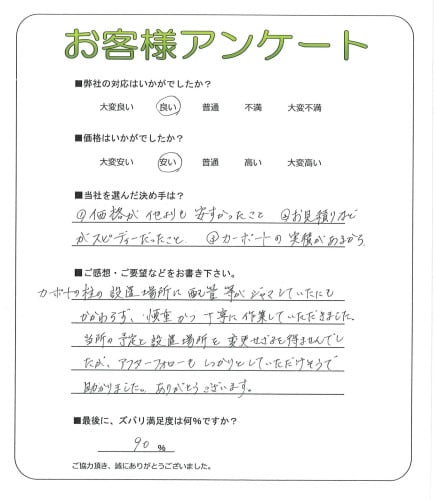 お客様アンケート
■弊社の対応はいかがでしたか?
大変良い 良い 普通 不満 大変不満
■価格はいかがでしたか?
大変安い 安い 普通 高い 大変高い
■当社を選んだ決め手は?
①価格が他よりも安すかったこと ②お見積りまで
がスピーディーだったこと ③カーポートの実績があるから
■ご感想・ご要望などをお書き下さい。
カーポートの柱の設置場所に配管等がジャマしていたにも
かかわらず、慎重かつ丁寧に作業していただきました。
当所の予定と設置場所を変更せざるを得ませんでし
たが、アフターフォローもしっかりとしていただけそうで
助かりました。ありがとうございます。
■最後に、ズバリ満足度は何%ですか?
90 %
ご協力頂き、誠にありがとうございました。